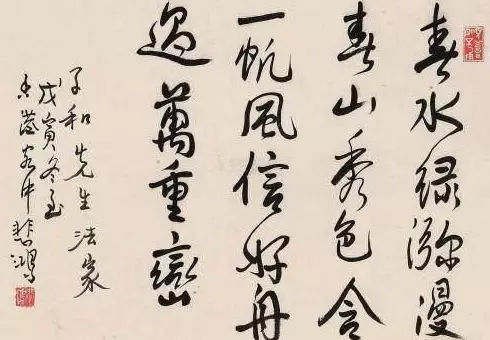 春水绿弥漫
春山秀色含
一帆风信好舟
過萬重巒
子和先生法家
戊寅冬至
香港客中悲鴻